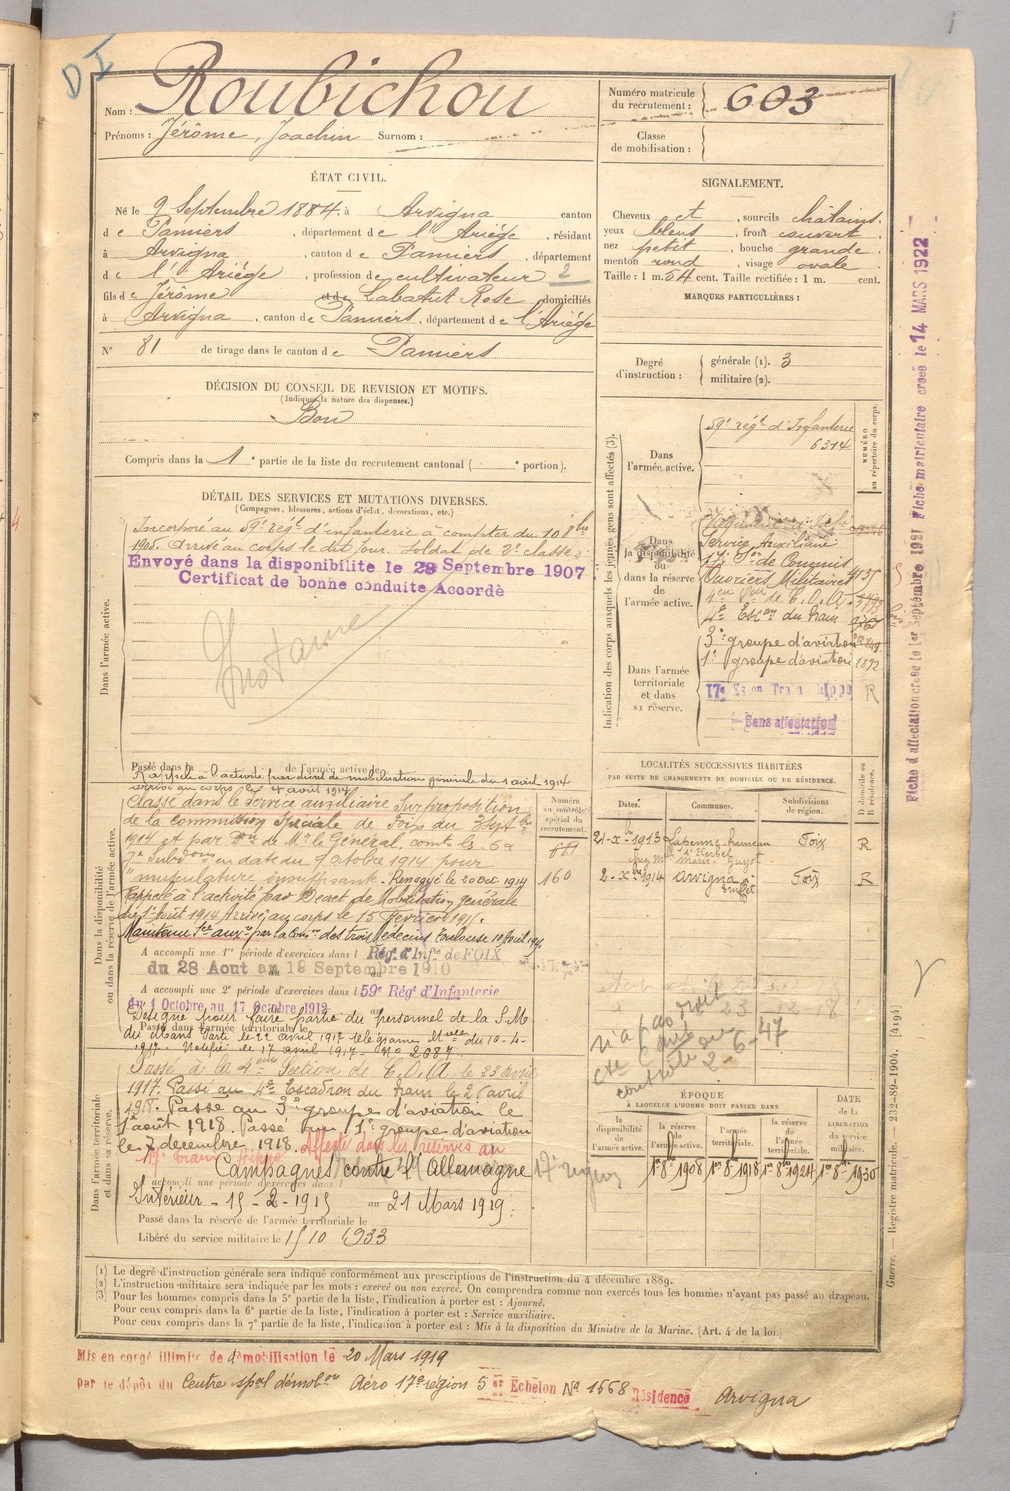 DI
Nom : Roubichou
Prénoms : Jérôme, Joachin Surnom :
ÉTAT CIVIL.
Né le 9 Septembre 1884, à Arvigna canton
de Pamiers, département de l'Ariége, résidant
à Arvigna, canton de Pamiers, département
de l'Ariége, profession de cultivateur 2
fils de Jérôme et de Labatut Rose domiciliés
à Arvigna, canton de Pamiers, département de l'Ariége
N° 81 de tirage dans le canton de Pamiers
DÉCISION DU CONSEIL DE REVISION ET MOTIFS.
(Indiquer la nature des dispenses.)
Bon
Compris dans la 1e partie de la liste du recrutement cantonal ( e portion).
DÉTAIL DES SERVICES ET MUTATIONS DIVERSES.
(Campagnes, blessures, actions d'éclat, décorations, etc.)
Dans l'armée active.
Incorporé au 59e régt d'infanterie à compter du 10 8bre
1905. Arrivé au corps le dit jour. Soldat de 2e classe.
Envoyé dans la disponibilite le 28 Septembre 1907
Certificat de bonne conduite Accordè
Passé dans la de l'armée active le
Rappelé à l'activité par décret de mobilisation générale du 1 août 1914
arrivé au corps le 4 août 1914
Dans la disponibilité ou dans la réserve de l'armée active.
Classé dans le service auxiliaire sur proposition
de la commission spéciale de Foix du 3 Sept bre
1914 et par Don de Mr le Général comt la 6e
7e Subdon en date du 9 Octobre 1914 pour
"musculature insuffisante. Renvoyé le 20 Oct. 1914
Rappelé à l'activité par Décret de Mobilisation générale
du 1er Août 1914 Arrivé au corps le 15 février 1915.
Maintenu Sce auxre par la Comon des trois Médecins Toulouse 10 avril 1917
A accompli une 1re période d'exercices dans l Rég. d'Infie de FOIX
du 28 Aout au 19 Septembre 1910
A accompli une 2e période d'exercices dans l 59e Régt d'Infanterie
du 1 Octobre au 17 Octobre 1912
Désigné pour faire partie du personnel de la S.M.
Passé dans l'armée territoriale le
du Mans Parti le 22 avril 1917 télégramme Mlle du 10-4-
1917. Notifié le 17 avril 1917 - No 2687
Dans l'armée territoriale et dans sa réserve.
Passé à la 4ème Section de C.O.A le 23 avril
1917. Passé au 4e Escadron du train le 26 avril
1918. Passé au 3e groupe d'aviation le
1 août 1918. Passé au 1er groupe d'aviation
le 7 décembre 1918. Affecté dans les réserves au
Campagnes contre l'Allemagne 17e région
A accompli une période d'exercices dans l
Intérieur - 15-2-1915 au 21 Mars 1919.
Passé dans la réserve de l'armée territoriale le
Libéré du service militaire le 15 10 1933
Numéro au contrôle spécial du recrutement.
160
Numéro matricule
du recrutement : 603
Classe
de mobilisation :
SIGNALEMENT.
Cheveux et, sourcils châtains.
yeux bleus, front couvert,
nez petit, bouche grande,
menton rond, visage ovale.
Taille : 1 m. 54 cent. Taille rectifiée : 1 m. cent.
MARQUES PARTICULIÈRES :
Degré
d'instruction :
générale (1). 3
militaire (2).
Indication des corps auxquels les jeunes gens sont affectés (3).
NUMÉRO au répertoire du corps.
Dans
l'armée active.
59e régt d'Infanterie
6314
Dans
la disponibilité
ou
dans la réserve
de
l'armée active.
Service Auxiliaire
17e Son de Commis
Ouvriers Militaires
4eme Son de C.O.A.
4e Escon du train
Dans l'armée
territoriale
et dans
sa réserve.
3e groupe d'aviation
1er groupe d'aviation 2892
17e Es on Train R
Sans affectation
LOCALITÉS SUCCESSIVES HABITÉES
PAR SUITE DE CHANGEMENTS DE DOMICILE OU DE RÉSIDENCE.
Dates. Communes. Subdivisions de région. D domicile ou R résidence.
21-Xbre 1913 Lapenne-hameau Foix R
2-Xbre 1914 Arvigna Foix R
n'a pas droit
carte
contrôlé 2-6-47
ÉPOQUE
À LAQUELLE L'HOMME DOIT PASSER DANS
DATE
de la
LIBÉRATION
du service
militaire.
la disponibilité de l'armée active.
la réserve de l'armée active.
l'armée territoriale.
la réserve de l'armée territoriale.
1er 8bre 1908 1er 8bre 1918 1er 8bre 1924 1er 8bre 1930
Fiche d'affectation créée le 1er Septembre 1921 Fiche matriculaire créée le 14 MARS 1922
Guerre. — Registre matricule. — 232-89-1904. [4194]
(1) Le degré d'instruction générale sera indiqué conformément aux prescriptions de l'instruction du 4 décembre 1889.
(2) L'instruction militaire sera indiquée par les mots : exercé ou non exercé. On comprendra comme non exercés tous les hommes n'ayant pas passé au drapeau.
(3) Pour les hommes compris dans la 5e partie de la liste, l'indication à porter est : Ajourné.
Pour ceux compris dans la 6e partie de la liste, l'indication à porter est : Service auxiliaire.
Pour ceux compris dans la 7e partie de la liste, l'indication à porter est : Mis à la disposition du Ministre de la Marine. (Art. 4 de la loi.)
Mis en congé illimité de démobilisation le 20 Mars 1919
par le dépôt du Centre spal démobon Aéro 17e région 5er Echelon No 1568 Résidence Arvigna